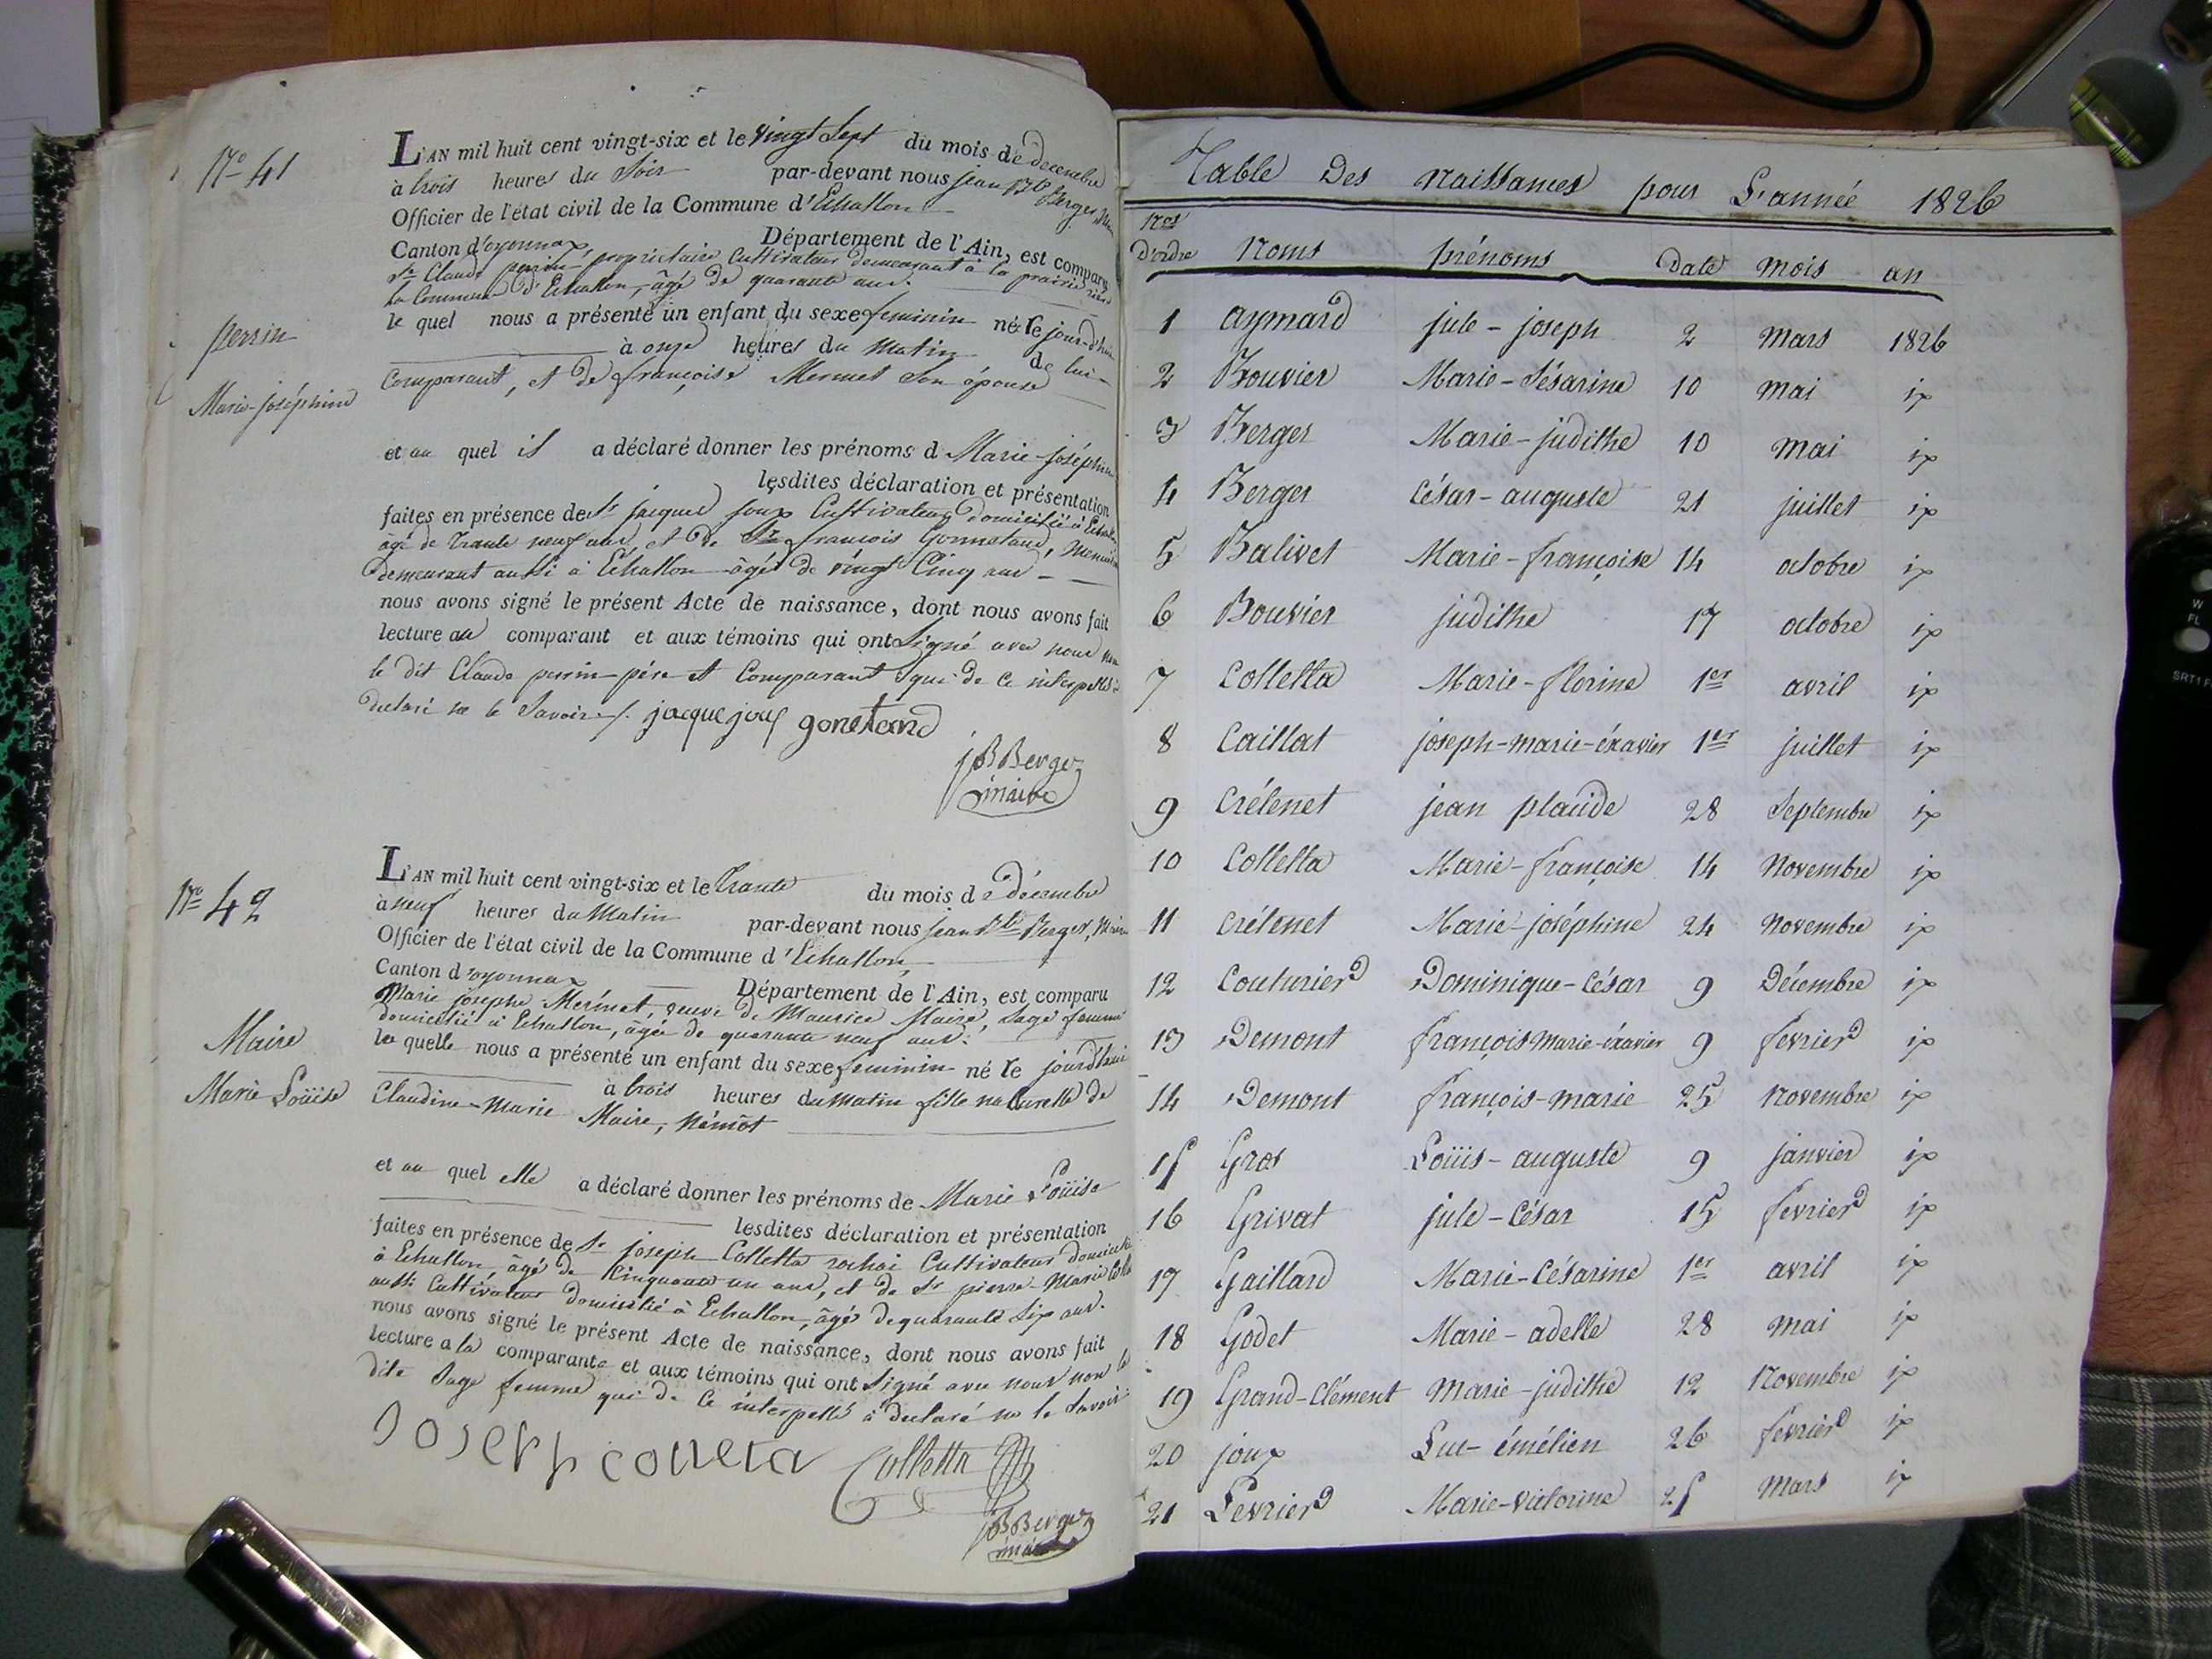 N° 41
L'AN mil huit cent vingt-six et le vingt sept du mois de decembre
à trois heures du Soir par-devant nous jean Bte Berger
Officier de l'état civil de la Commune d'Echallon
Canton d'oyonnax, Département de l'Ain, est comparu
Sr Claude perrin, propriétaire Cultivateur demeurant à la prairie
la Commune d'Echallon, âgé de quarante ans.
le quel nous a présenté un enfant du sexe feminin né le jour-d'hui
à onze heures du Matin de lui-
Comparant, et de françoise Mermet Son épouse
perrin
Marie-joséphine
et au quel il a déclaré donner les prénoms d Marie-joséphine
lesdites déclaration et présentation
faites en présence de Sr jacques joux Cultivateur domicilié à Echallon
âgé de trante neuf ans, et de Sr françois Gonnetand, Menuisier
demeurant aussi à Echallon âgé de vingt Cinq ans
nous avons signé le présent Acte de naissance, dont nous avons fait
lecture au comparant et aux témoins qui ont Signé avec nous non
le dit Claude perrin père et Comparant qui de ce interpellé à
declaré ne le Savoir. jacque joux gonetand
jB Berger
maire
N° 42
L'AN mil huit cent vingt-six et le trante du mois de décembre
à neuf heures du Matin par-devant nous jean Bte Berger, Maire
Officier de l'état civil de la Commune d'Echallon,
Canton d'oyonnax Département de l'Ain, est comparu
Marie josephe Mermet, veuve de Maurice Maire, Sage femme
domicilié à Echallon, âgée de quarante neuf ans.
la quelle nous a présenté un enfant du sexe feminin né le jourd'hui
à trois heures du Matin fille naturelle de
Claudine-Marie Maire,
Maire
Marie Loüise
et au quel elle a déclaré donner les prénoms de Marie Loüise
lesdites déclaration et présentation
faites en présence de Sr joseph Colletta Cultivateur domicilié
à Echallon, âgé de Cinquante un ans, et de Sr pierre-Marie
aussi Cultivateur domicilié à Echallon, âgé de quarante Six ans.
nous avons signé le présent Acte de naissance, dont nous avons fait
lecture a la comparante et aux témoins qui ont Signé avec nous non la
dite Sage femme qui de Ce interpellé à declaré ne le Savoir
Joseph colleta Colletta
jB Berger
maire
Table Des Naissances pour L'année 1826
Nos d'ordre Noms prénoms date mois an
1 aymard jule-joseph 2 Mars 1826
2 Bouvier Marie-Sésarine 10 mai ix
3 Berger Marie-judithe 10 mai ix
4 Berger César-auguste 21 juillet ix
5 Balivet Marie-françoise 14 octobre ix
6 Bouvier judithe 17 octobre ix
7 Colletta Marie-florine 1er avril ix
8 Caillat joseph-marie-éxavier 1er juillet ix
9 Crétenet jean plaside 28 Septembre ix
10 Colletta Marie-françoise 14 Novembre ix
11 Crétenet Marie-joséphine 24 Novembre ix
12 Couturier Dominique-César 9 Décembre ix
13 Demont françois marie-éxavier 9 fevrier ix
14 Demont françois-marie 25 Novembre ix
15 Gros Loüis-auguste 9 janvier ix
16 Grivat jule-César 15 fevrier ix
17 Gaillard Marie-Césarine 1er avril ix
18 Godet Marie-adelle 28 mai ix
19 Grand-Clément Marie-judithe 12 Novembre ix
20 joux Luc-émélien 26 fevrier ix
21 Levrier Marie-victorine 25 Mars ix